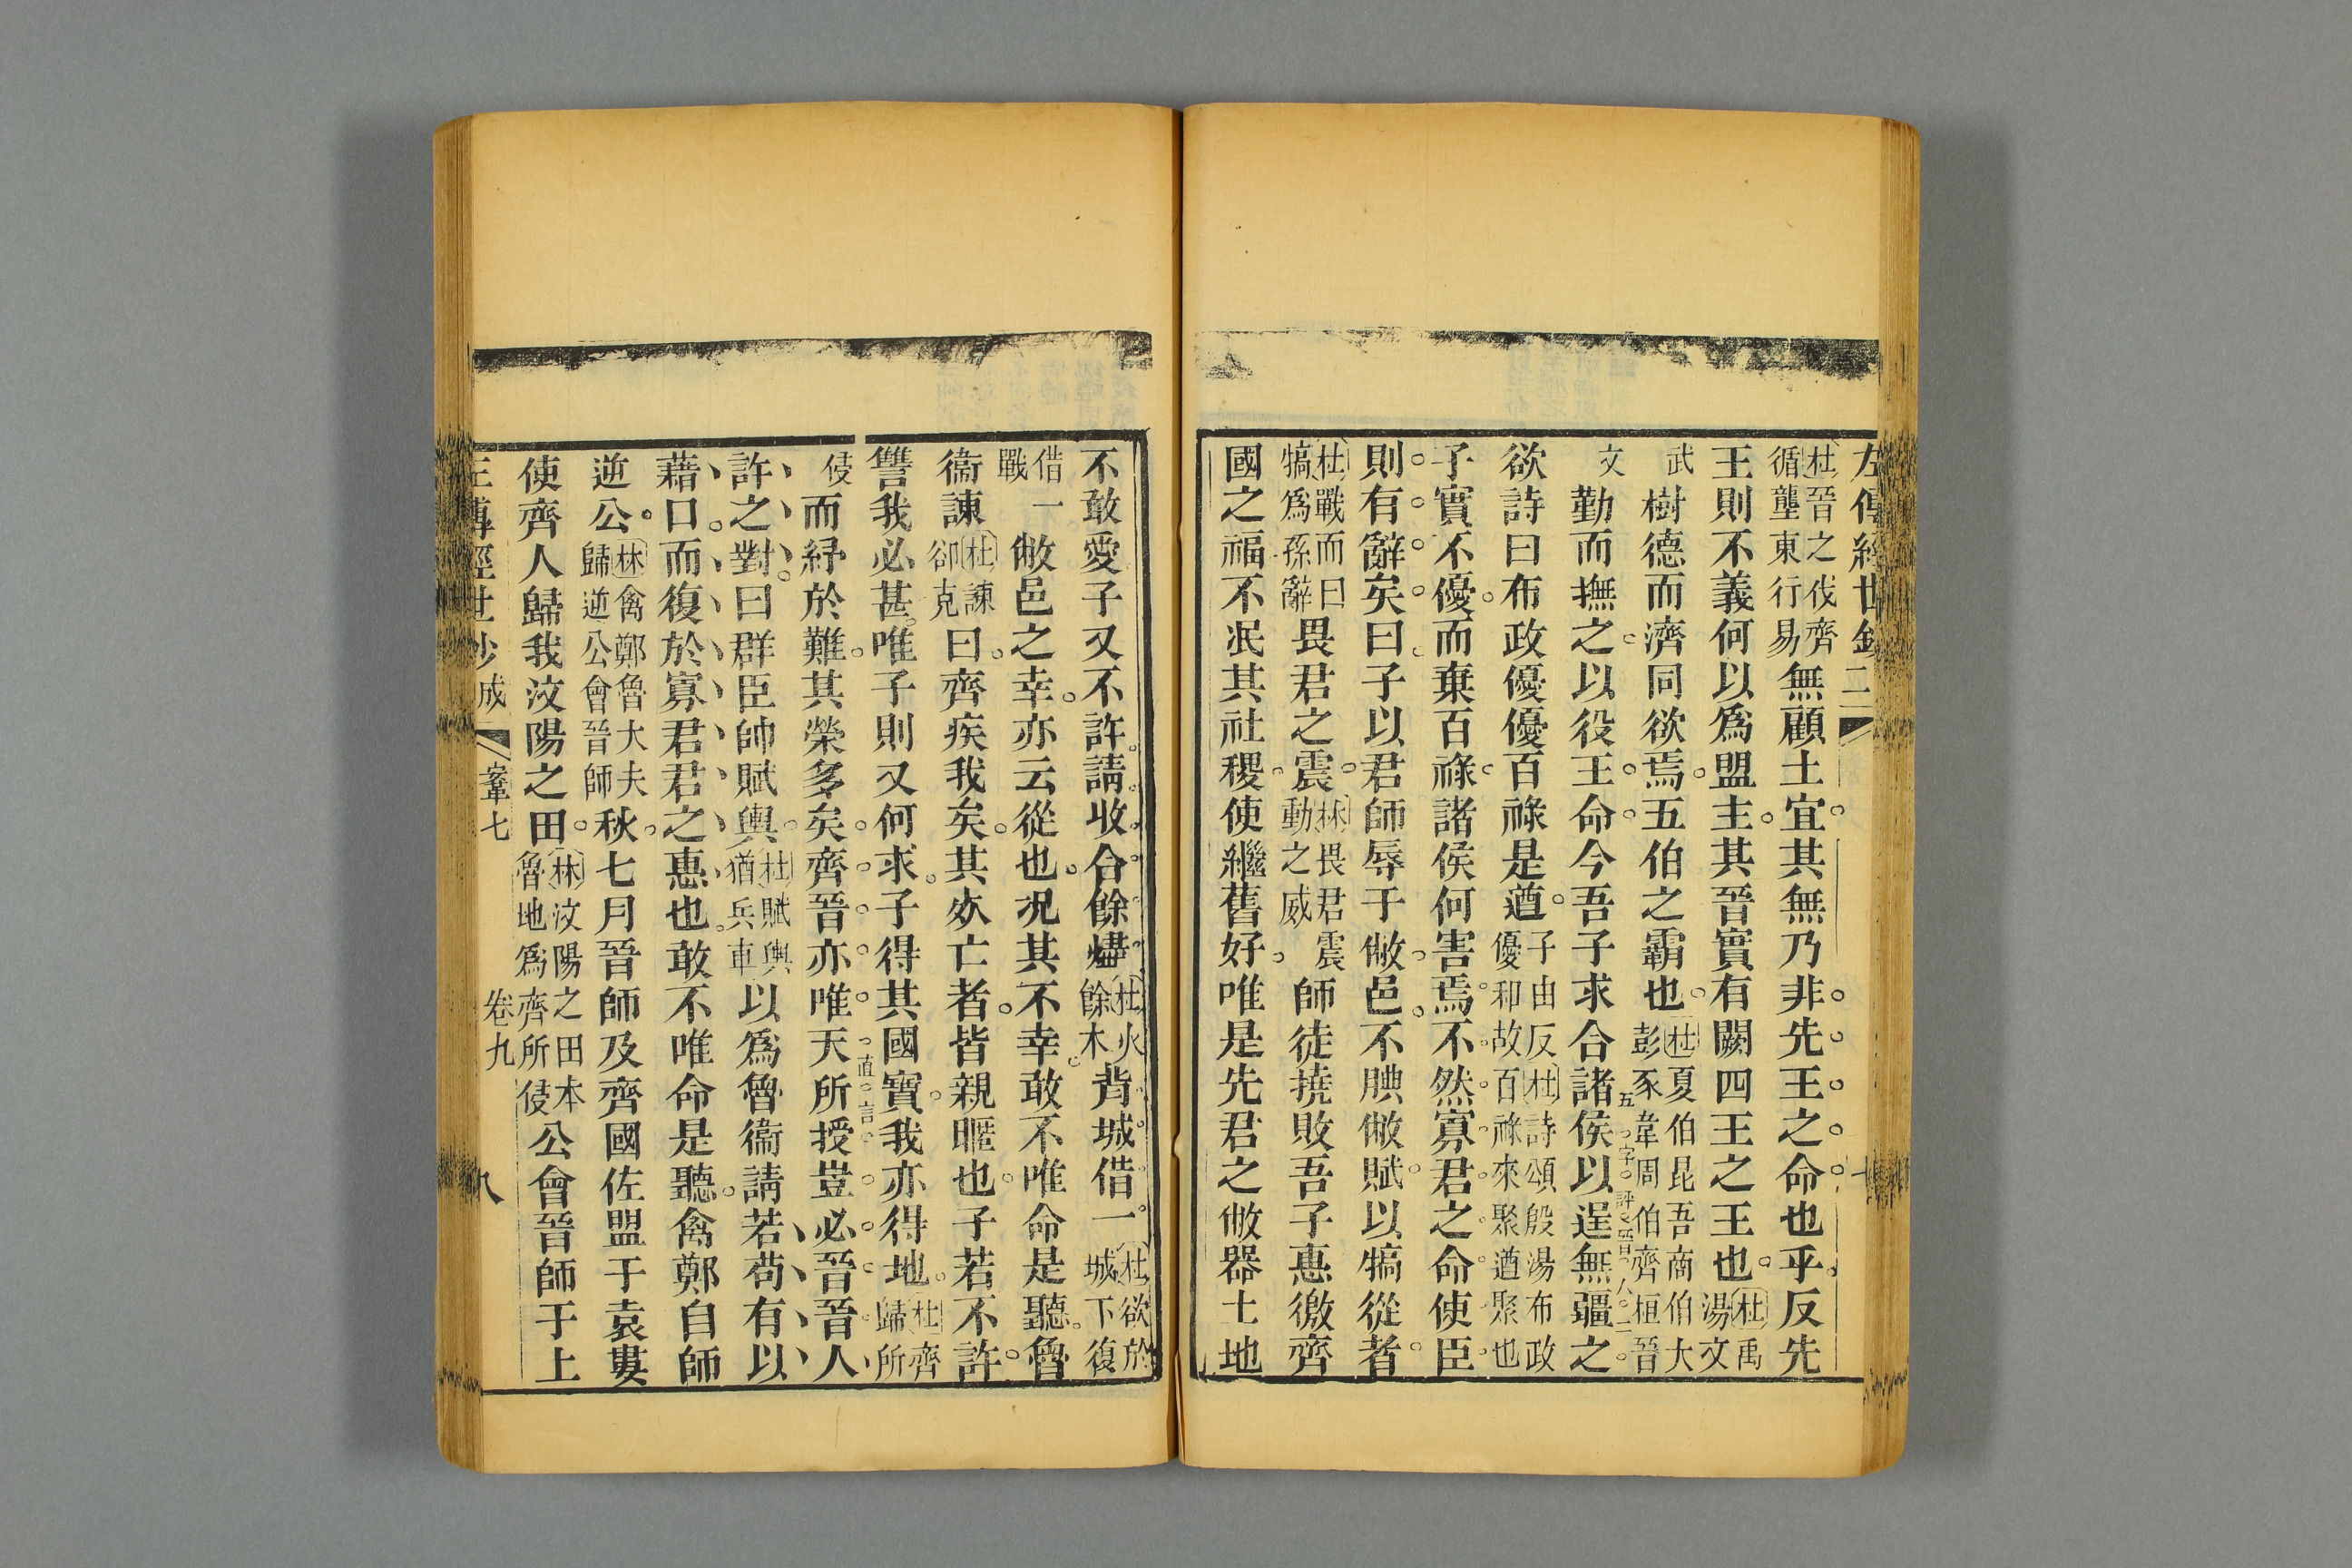 左傳經世鈔二
杜晉之伐齊循壟東行易無顧土宜其無乃非先王之命也乎反先
王則不義何以爲盟主其晉實有闕四王之王也杜禹湯文
武樹德而濟同欲焉五伯之霸也杜夏伯昆吾商伯大彭豕韋周伯齊桓晉
文勤而撫之以役王命今吾子求合諸侯以逞無疆之
五字評晉人二
欲詩曰布政優優百祿是遒子由反杜詩頌殷湯布政優和故百祿來聚遒聚也
子實不優而棄百祿諸侯何害焉不然寡君之命使臣
則有辭矣曰子以君師辱于敝邑不腆敝賦以犒從者
杜戰而曰犒爲孫辭畏君之震林畏君震動之威師徒撓敗吾子惠徼齊
國之福不泯其社稷使繼舊好唯是先君之敝器土地
不敢愛子又不許請收合餘燼杜火餘木背城借一杜欲於城下復
借一戰敝邑之幸亦云從也况其不幸敢不唯命是聽魯
衞諫杜諫郤克曰齊疾我矣其死亡者皆親暱也子若不許
讐我必甚唯子則又何求子得其國寶我亦得地杜齊歸所
侵而紓於難其榮多矣齊晉亦唯天所授豈必晉晉人
直言
許之對曰群臣帥賦輿杜賦輿猶兵車以爲魯衞請若苟有以
藉口而復於寡君君之惠也敢不唯命是聽禽鄭自師
逆公林禽鄭魯大夫歸逆公會晉師秋七月晉師及齊國佐盟于袁婁
使齊人歸我汶陽之田林汶陽之田本魯地爲齊所侵公會晉師于上
左傳經世鈔成 鞌七 卷九 八